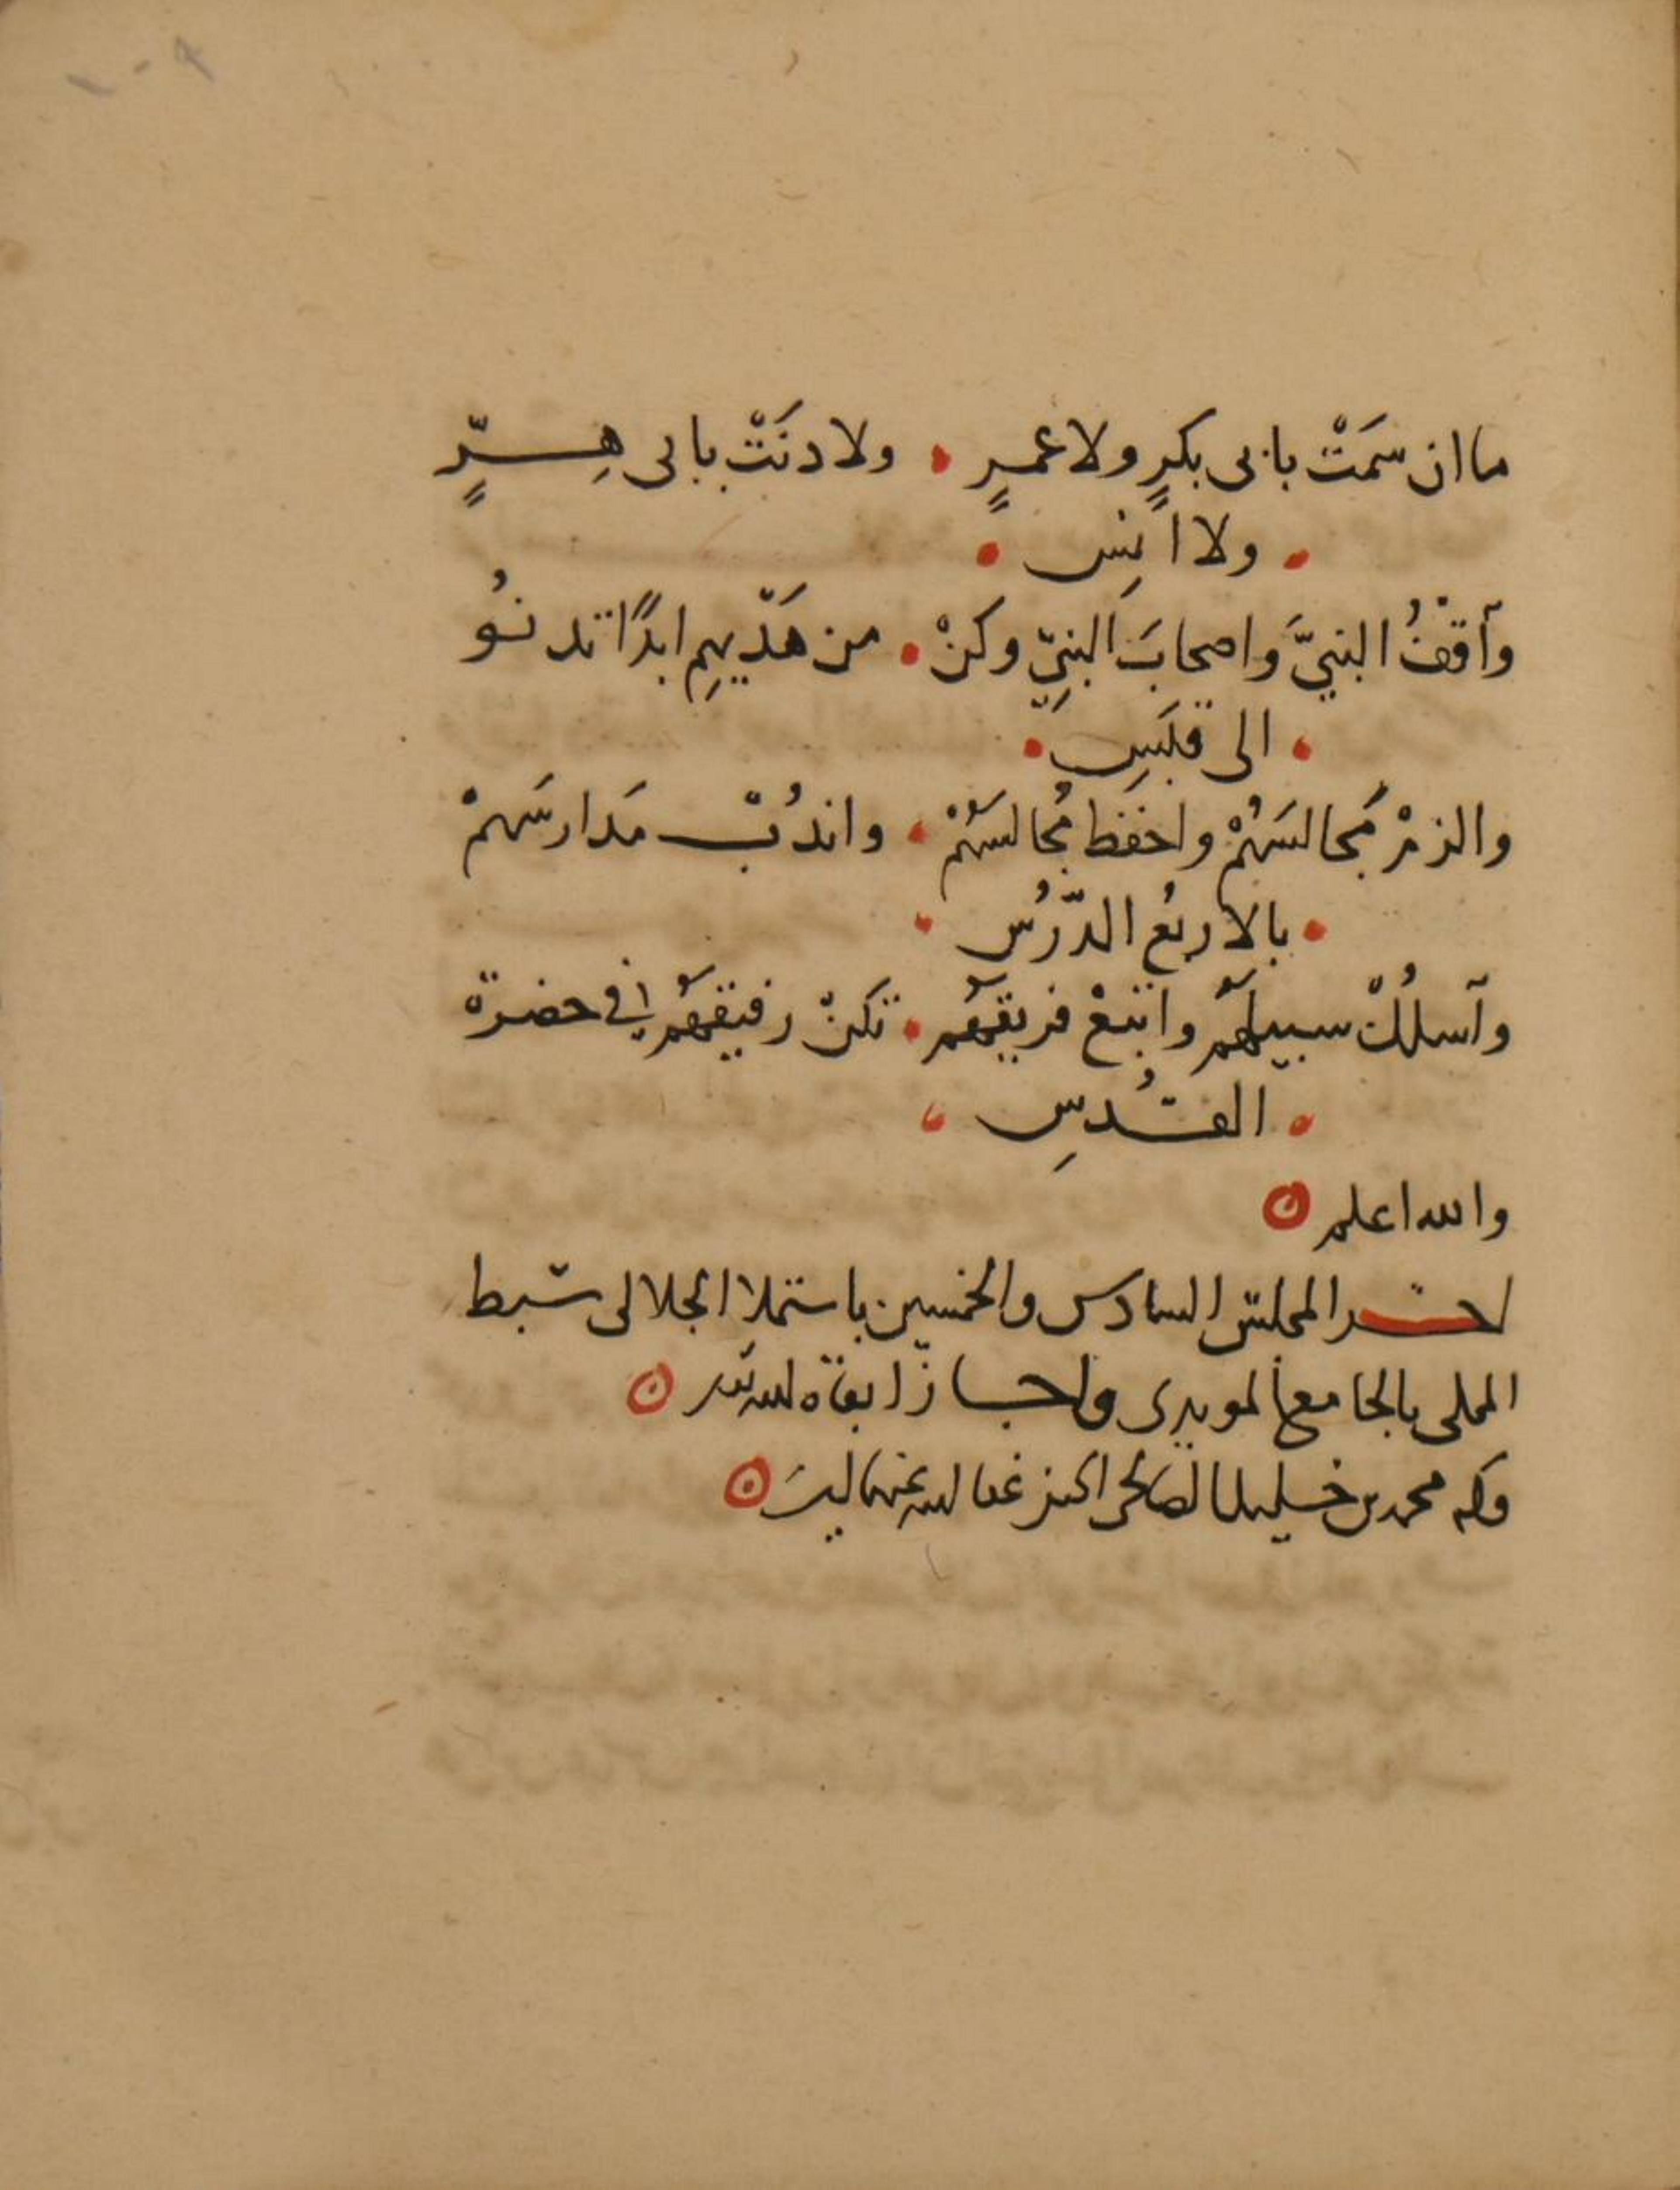 ما ان سمَتْ بابى بكرٍ ولا عمرٍ • ولا دنَتْ بابى هِرٍّ
• ولا انسِ •
وآقفُ النبيَّ واصحابَ النبيِّ وكنْ • من هَدْيهِم ابدًا تدنُو
• الى قَبَسِ •
والزمْ مَجالسَهُمْ واحفَظ مُجالسَهُمْ • واندُبْ مَدارسَهمْ
• بالاربُع الدُّرُس •
وآسلُكْ سبيلَهُم واتبعْ فريقَهُم • تكنْ رفيقَهُم فى حضرة
• القُدسِ •
والله اعلم
اخر المجلس السادس والخمسين باستملا الجلالى سبط
بالجامع المويدى واجاز ابقاه الله
محمد بن خليل الصالحى